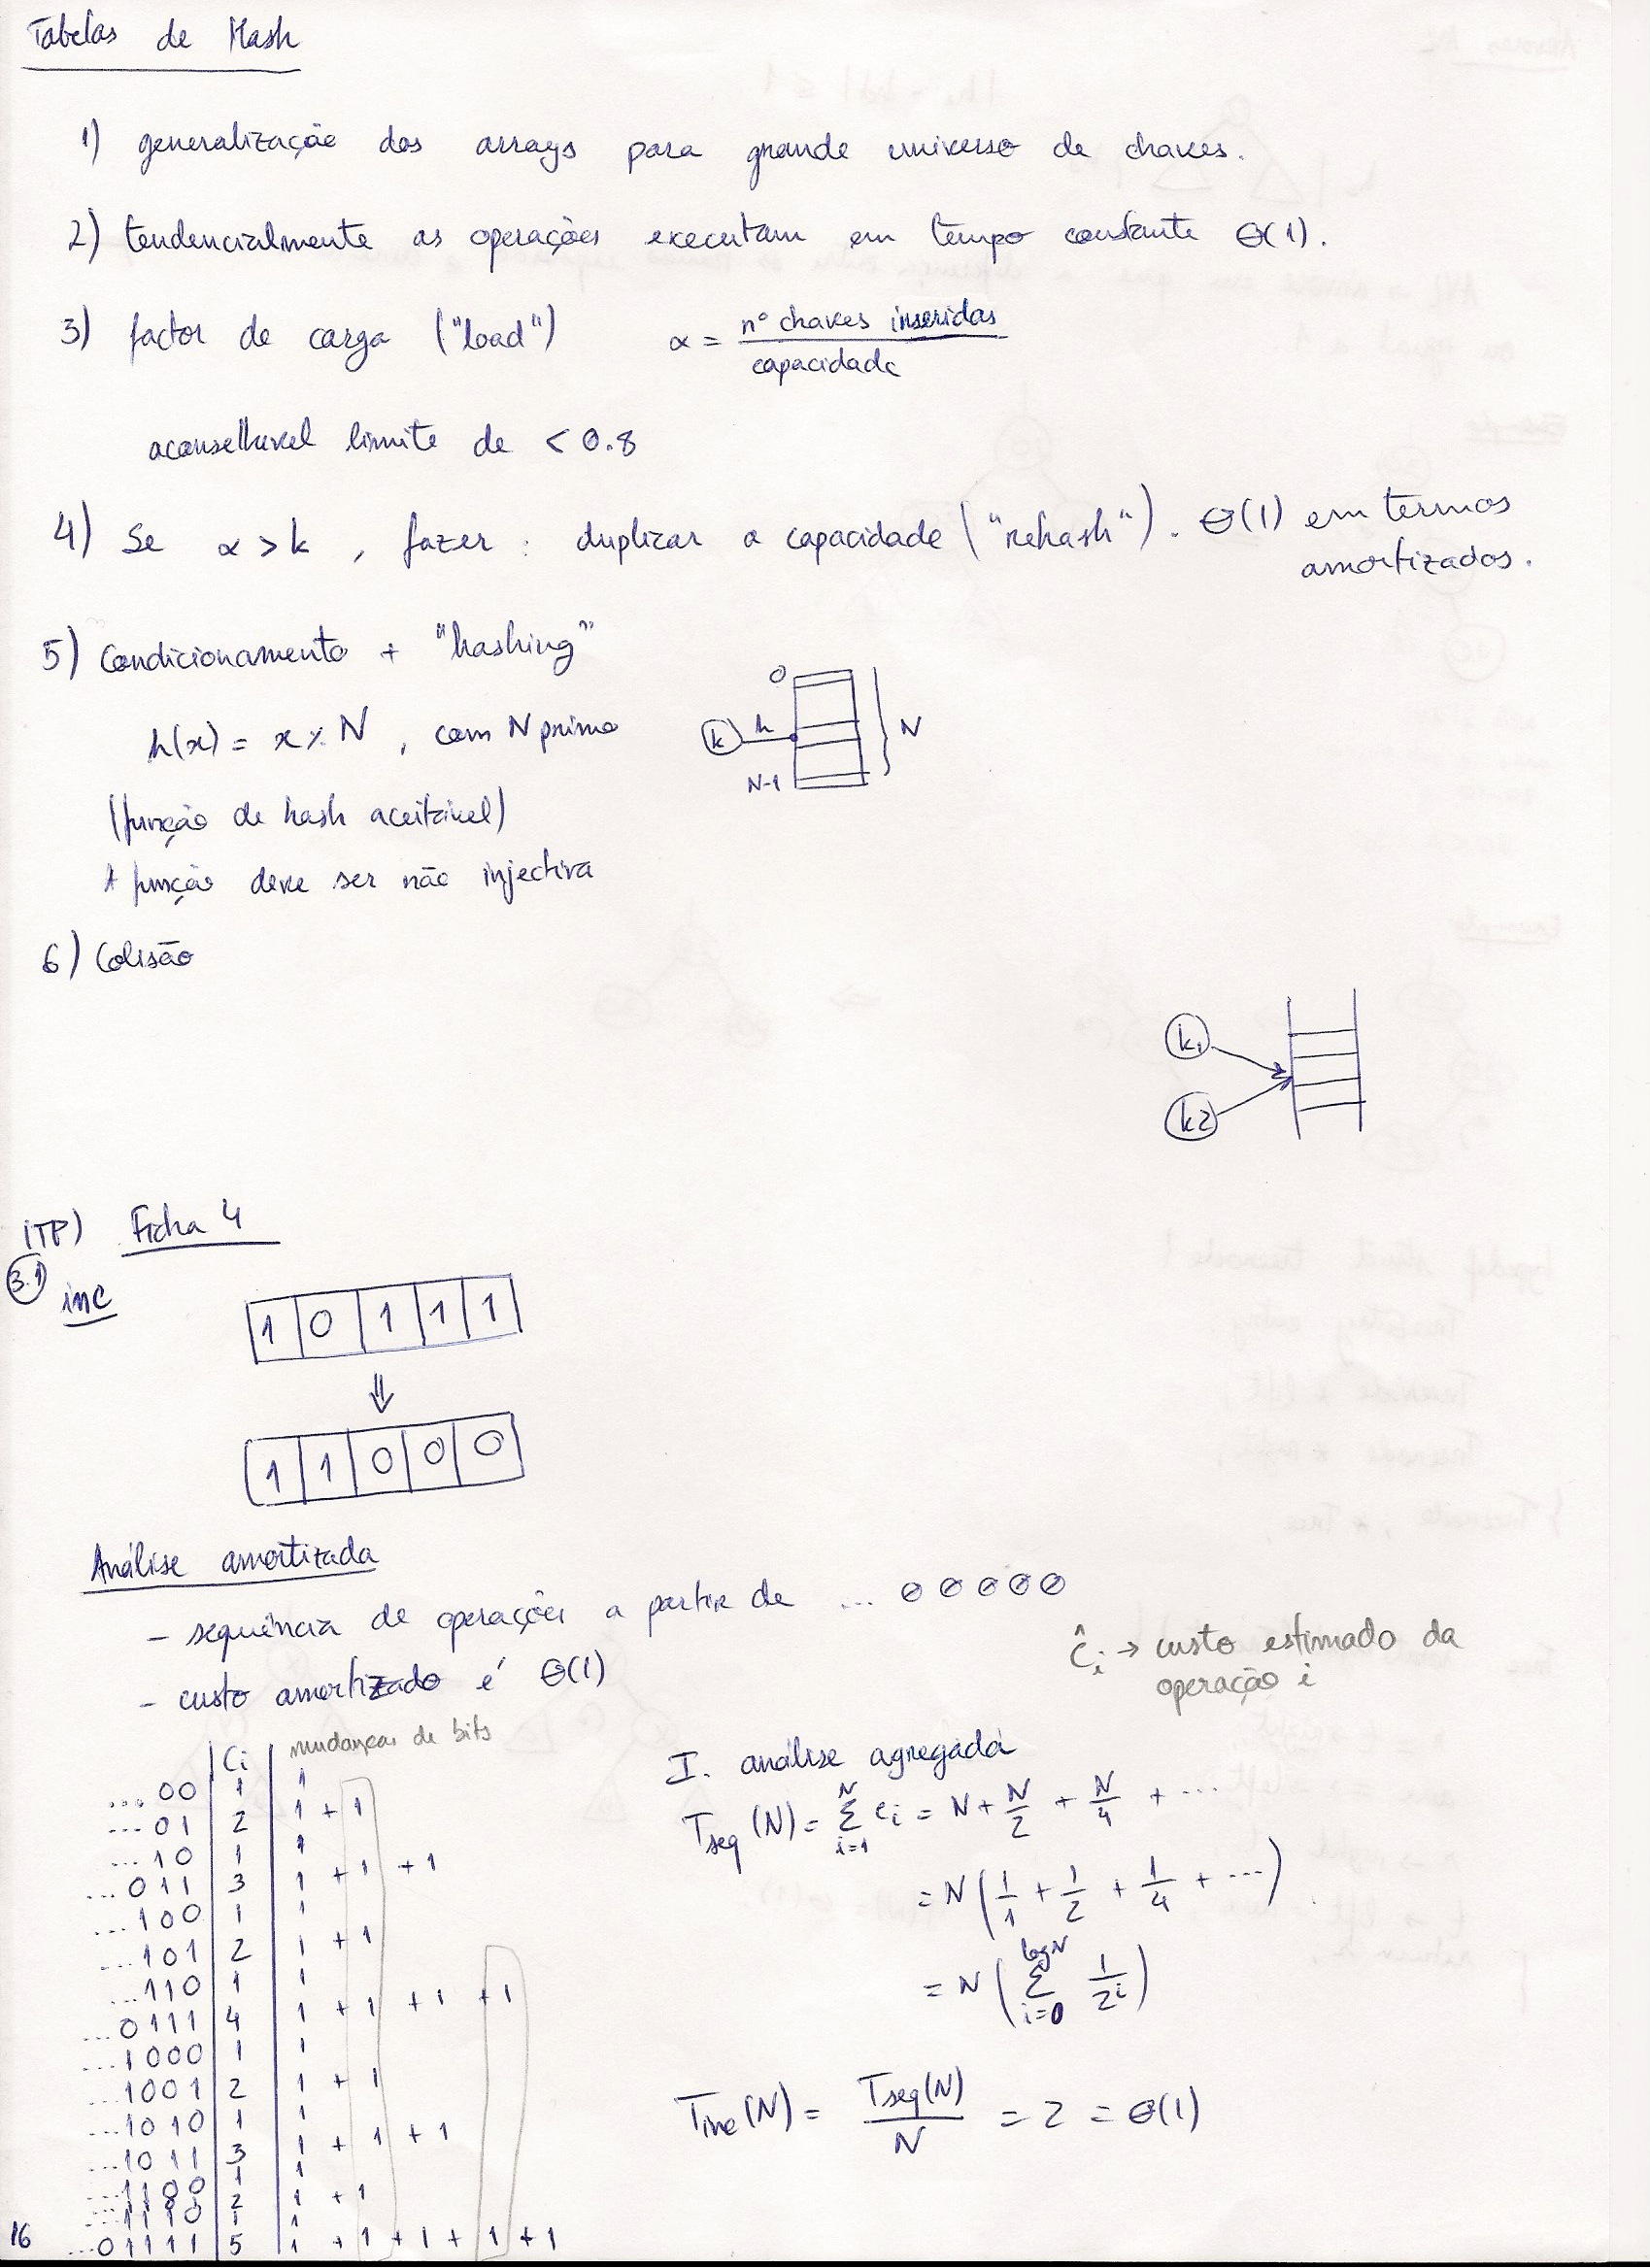 Tabelas de Hash
1) generalização dos arrays para grande universo de chaves.
2) tendencialmente as operações executam em tempo constante Θ(1).
3) factor de carga ("load") α = nº chaves inseridas / capacidade
aconselhavel limite de < 0.8
4) Se α > k , fazer : duplicar a capacidade ("rehash"). Θ(1) em termos
amortizados.
5) Condicionamento + "hashing"
h(x) = x % N , com N primo
(função de hash aceitável)
A função deve ser não injectiva
0
k h N
N-1
6) Colisão
k1
k2
(TP) Ficha 4
3.1) inc
1 0 1 1 1
⇓
1 1 0 0 0
Análise amortizada
- sequência de operações a partir de ... 0 0 0 0 0
- custo amortizado é Θ(1)
ĉi → custo estimado da
operação i
Ci mudanças de bits
...00 1 1
...01 2 1 + 1
...10 1 1
...011 3 1 + 1 + 1
...100 1 1
...101 2 1 + 1
...110 1 1
...0111 4 1 + 1 + 1 + 1
...1000 1 1
...1001 2 1 + 1
...1010 1 1
...1011 3 1 + 1 + 1
...1100 1 1
2 1 + 1
...1110 1 1
...01111 5 1 + 1 + 1 + 1 + 1
I. análise agregada
Tseq(N) = Σ(i=1 → N) ci = N + N/2 + N/4 + ...
= N (1/1 + 1/2 + 1/4 + ...)
= N (Σ(i=0 → log N) 1/2^i)
Tinc(N) = Tseq(N)/N = 2 = Θ(1)
16